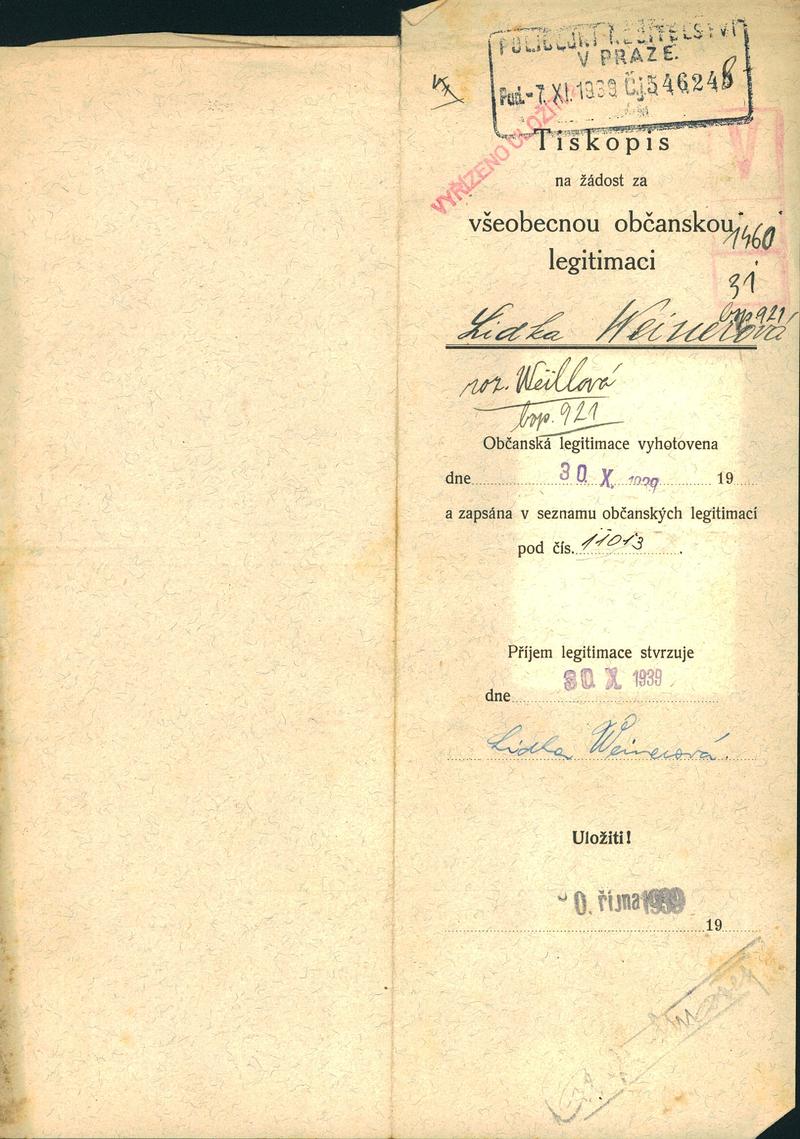 POLICEJNÍ ŘEDITELSTVÍ
V PRAZE.
Pod. -7. XI. 1939 Čj. 546248
VYŘÍZENO ULOŽIT
V
Tiskopis
na žádost za
všeobecnou občanskou
1460
legitimaci
31
bop. 921
Lidka Weinerová
roz. Weillová
bop. 921
Občanská legitimace vyhotovena
dne 30. X. 1939 19
a zapsána v seznamu občanských legitimací
pod čís. 11013.
Příjem legitimace stvrzuje
30. X 1939
dne
Lidka Weinerová.
Uložiti!
0. října 1939
19